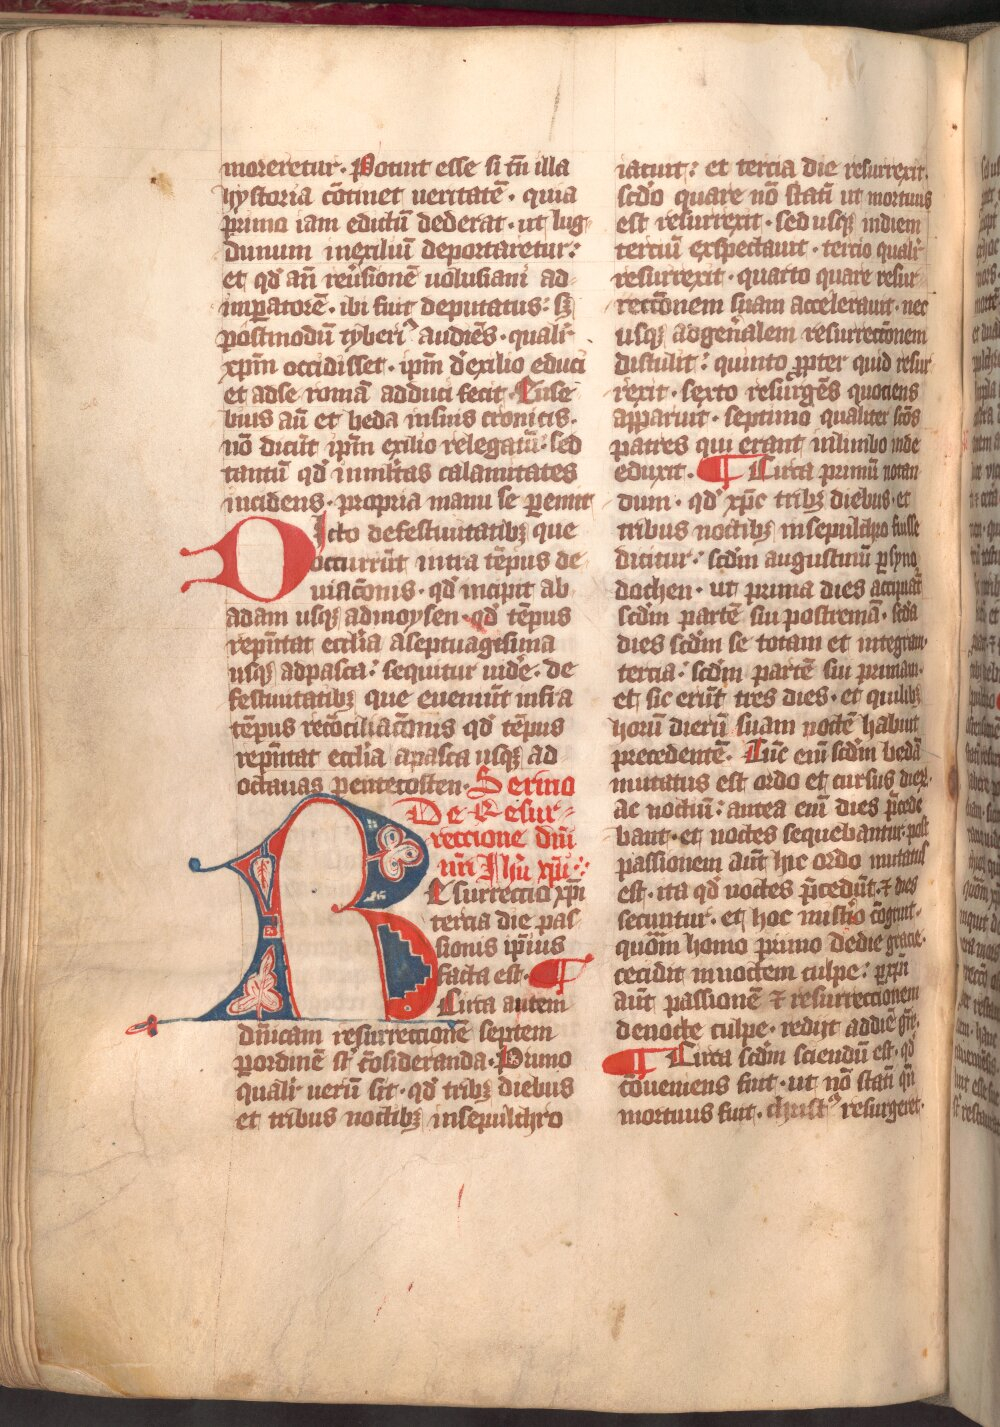 moreretur · Potuit esse si tn̄ illa
hystoria cōtinet ueritatē · quia
primo iam edictū dederat · ut lug
dunum inexiliū deportaretur :
et qd' an̄ reūsionē uolusiani ad
impatorē · ibi fuit deputatus : sꝫ
postmodū tyberiꝰ audiēs · qualiꝰ
xpm̄ occidisset · ip̄m d'exilio educi
et adse romā adduci fecit · Euse
bius aū et beda insuis cronicis ·
nō dicūt ip̄m exilio relegatū · sed
tantū qd' inmltas calamitates
incidens · propria manu se ꝑemit
Dicto defestiuitatibꝫ que
occurrūt intra tēpus de
uiac̄onis · qd' incipit ab
adam usqꝫ admoysen · qd' tēpus
rep̄ntat eccl̄ia aseptuagesima
usqꝫ adpasca : sequitur uidē · de
festiuitatibꝫ que eueniūt infra
tēpus recōciliac̄onis qd' tēpus
rep̄ntat eccl̄ia apasca usqꝫ ad
octauas pentecosten · Sermo
De Resur-
reccione dn̄i
nr̄i Ihū xp̄i
Resurreccio xp̄i
tercia die pas
sionis ip̄ius
facta est · ¶
Circa autem
dn̄icam resurreccionē septem
ꝑordinē st̄ cōsideranda · Primo
qualiꝰ uerū sit · qd' tribꝫ diebus
et tribus noctibꝫ insepulchro
iacuit : et tercia die resurrexit ·
scd'o quare nō statī ut mortuus
est resurrexit · sed usqꝫ indiem
terciū exspectauit · tercio qualiꝰ
resurrexit · quarto quare resur
rectōnem suam accelerauit · nec
usqꝫ adgen̄alem resurrectōnem
distulit : quinto ꝓpter quid resur
rexit · sexto resurgēs quociens
apparuit · septimo qualiter scōs
patres qui erant inlimbo inde
eduxit · ¶ Circa primū notan
dum · qd' xp̄c tribꝫ diebus · et
tribus noctibꝫ insepulchro fuisse
dicitur : scd̄m augustinū ꝑ syno
dochen · ut prima dies accipiat̄
scd̄m partē sui postremā · scd̄a
dies scd̄m se totam et integram ·
tercia : scd̄m partē sui primam ·
et sic erūt tres dies · et quilibꝫ
horū dierū suam noctē habuit
precedentē · Tūc eni scd̄m bedā
mutatus est ordo et cursus dieꝝ ·
ac noctiū : antea eni dies p̄cede
bant · et noctes sequebantur · post
passionem aūt hic ordo mutatus
est · ita qd' noctes p̄cedūt · ⁊ dies
secuntur · et hoc mistio cōgruit ·
quōm homo primo dedie gracie ·
cecidit innoctem culpe : ꝑ xp̄i
aūt passionē ⁊ resurreccionem
denocte culpe · redijt addiē gr̄e ·
¶ Circa scd̄m sciendū est · qd'
cōueniens fuit · ut nō statī qn̄
mortuus fuit · christꝰ resurgeret ·